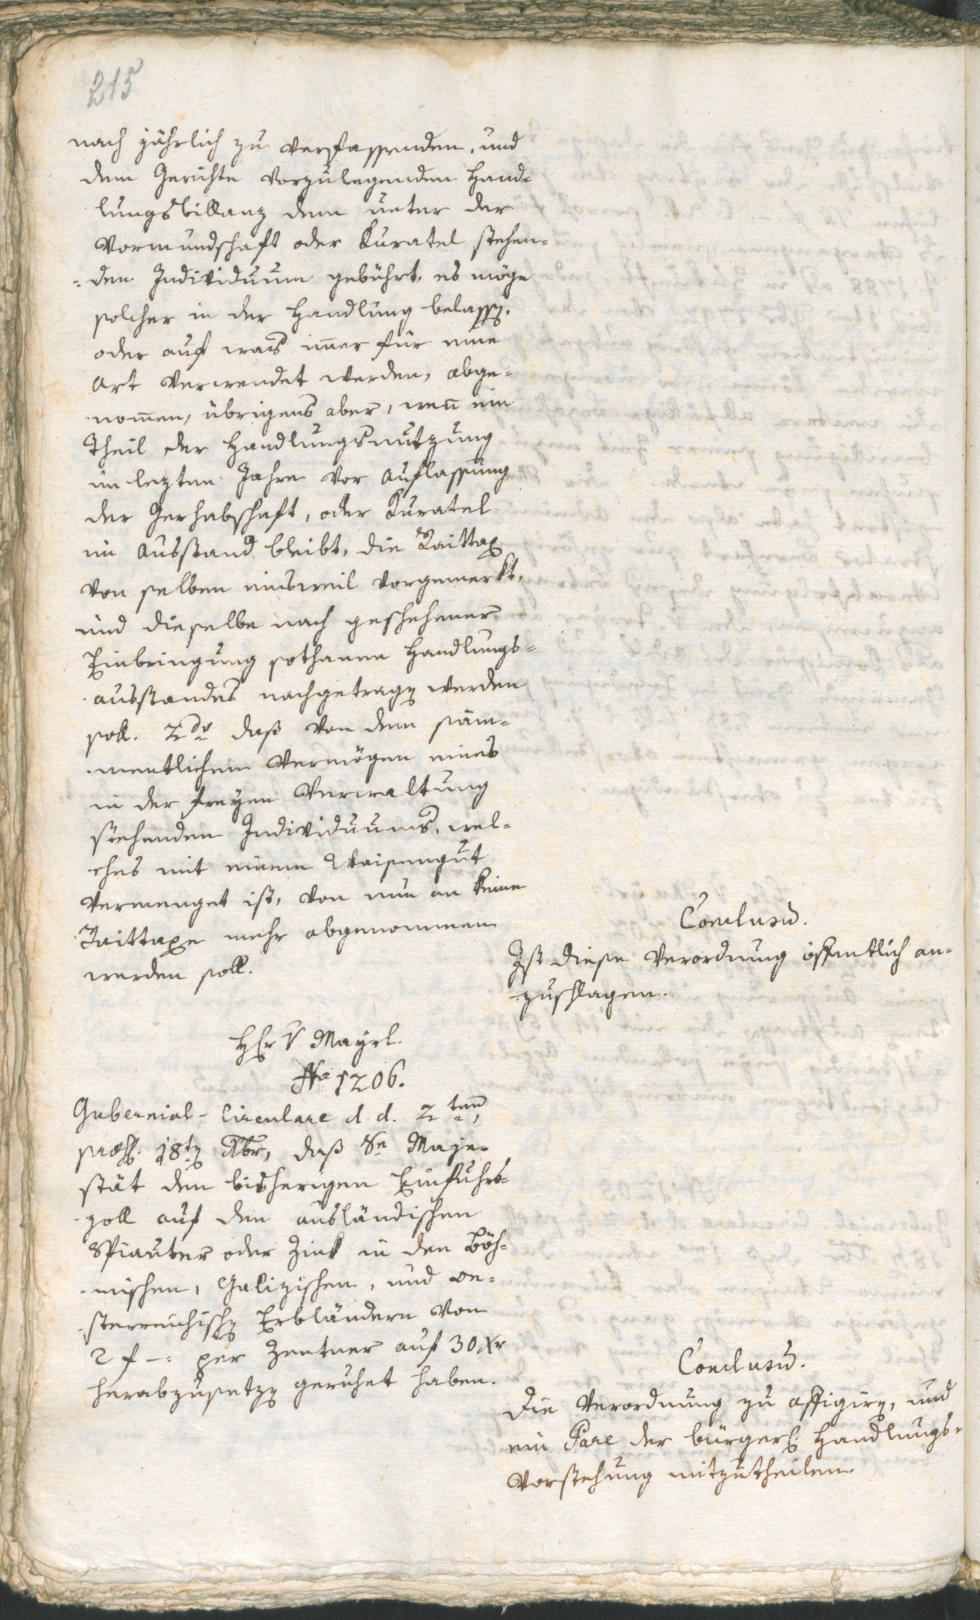 215
nach jährlich zu verfassenden, und
dem Gerichte vorzulegenden Hand¬
lungsbillanz dem unter der
Vormundschaft oder Kuratel stehen¬
den Individuum gebührt, es möge
solcher in der Handlung belassen,
oder auf was im̄er für eine
Art verwendet werden, abge¬
nom̄en, übrigens aber, wen̄ ein
Theil der Handlungsnutzung
im lezten Jahre vor Auflassung
der Gerhabschaft, oder Kuratel
im Ausstand bleibt, die Raittax
von selben einsweil vorgemerkt,
und dieselbe nach geschehener
Einbringung sothanen Handlungs¬
ausstandes nachgetragen werden
soll. 2do daß von dem säm¬
mentlichen Vermögen eines
in der freyen Verwaltung
stehenden Individuums, wel¬
ches mit einem Waisengut
vermenget ist, von nun an keine
Raittaxe mehr abgenommen
werden soll.
Conclusū.
Ist diese Verordnung öffentlich an¬
zuschlagen.
Hr v Mayrl.
No 1206.
Gubernial-Circulare d. d. 2ten,
præs. 18ten Xbr, daß Se Maje¬
stät den bisherigen Einfuhrs¬
zoll auf den ausländischen
Spiauter oder Zink in den Böh¬
mischen, Galizischen, und oe¬
sterreichischen Erbländern von
2 f –: per Zentner auf 30 Xr
herabzusetzen geruhet haben.
Conclusū.
Die Verordnung zu affigiren, und
ein Pare der bürgerl. Handlungs¬
vorstehung mitzutheilen.